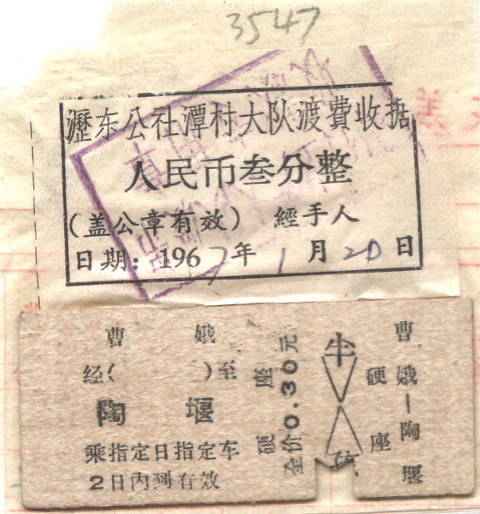 3547
瀝东公社潭村大队渡費收据
人民币叁分整
(盖公章有效) 經手人
日期：1967年1月20日
曹 娥
经( )至
陶 堰
乘指定日指定车
2日内到有效
硬 座
全价0.30元
半
曹娥—陶堰
硬 座